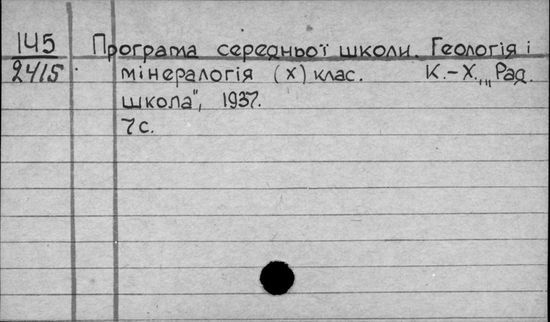 145 Програма середньої школи. Геологія і
2415 мінералогія (X) клас. К.-Х., „Рад.
школа", 1937.
7 с.